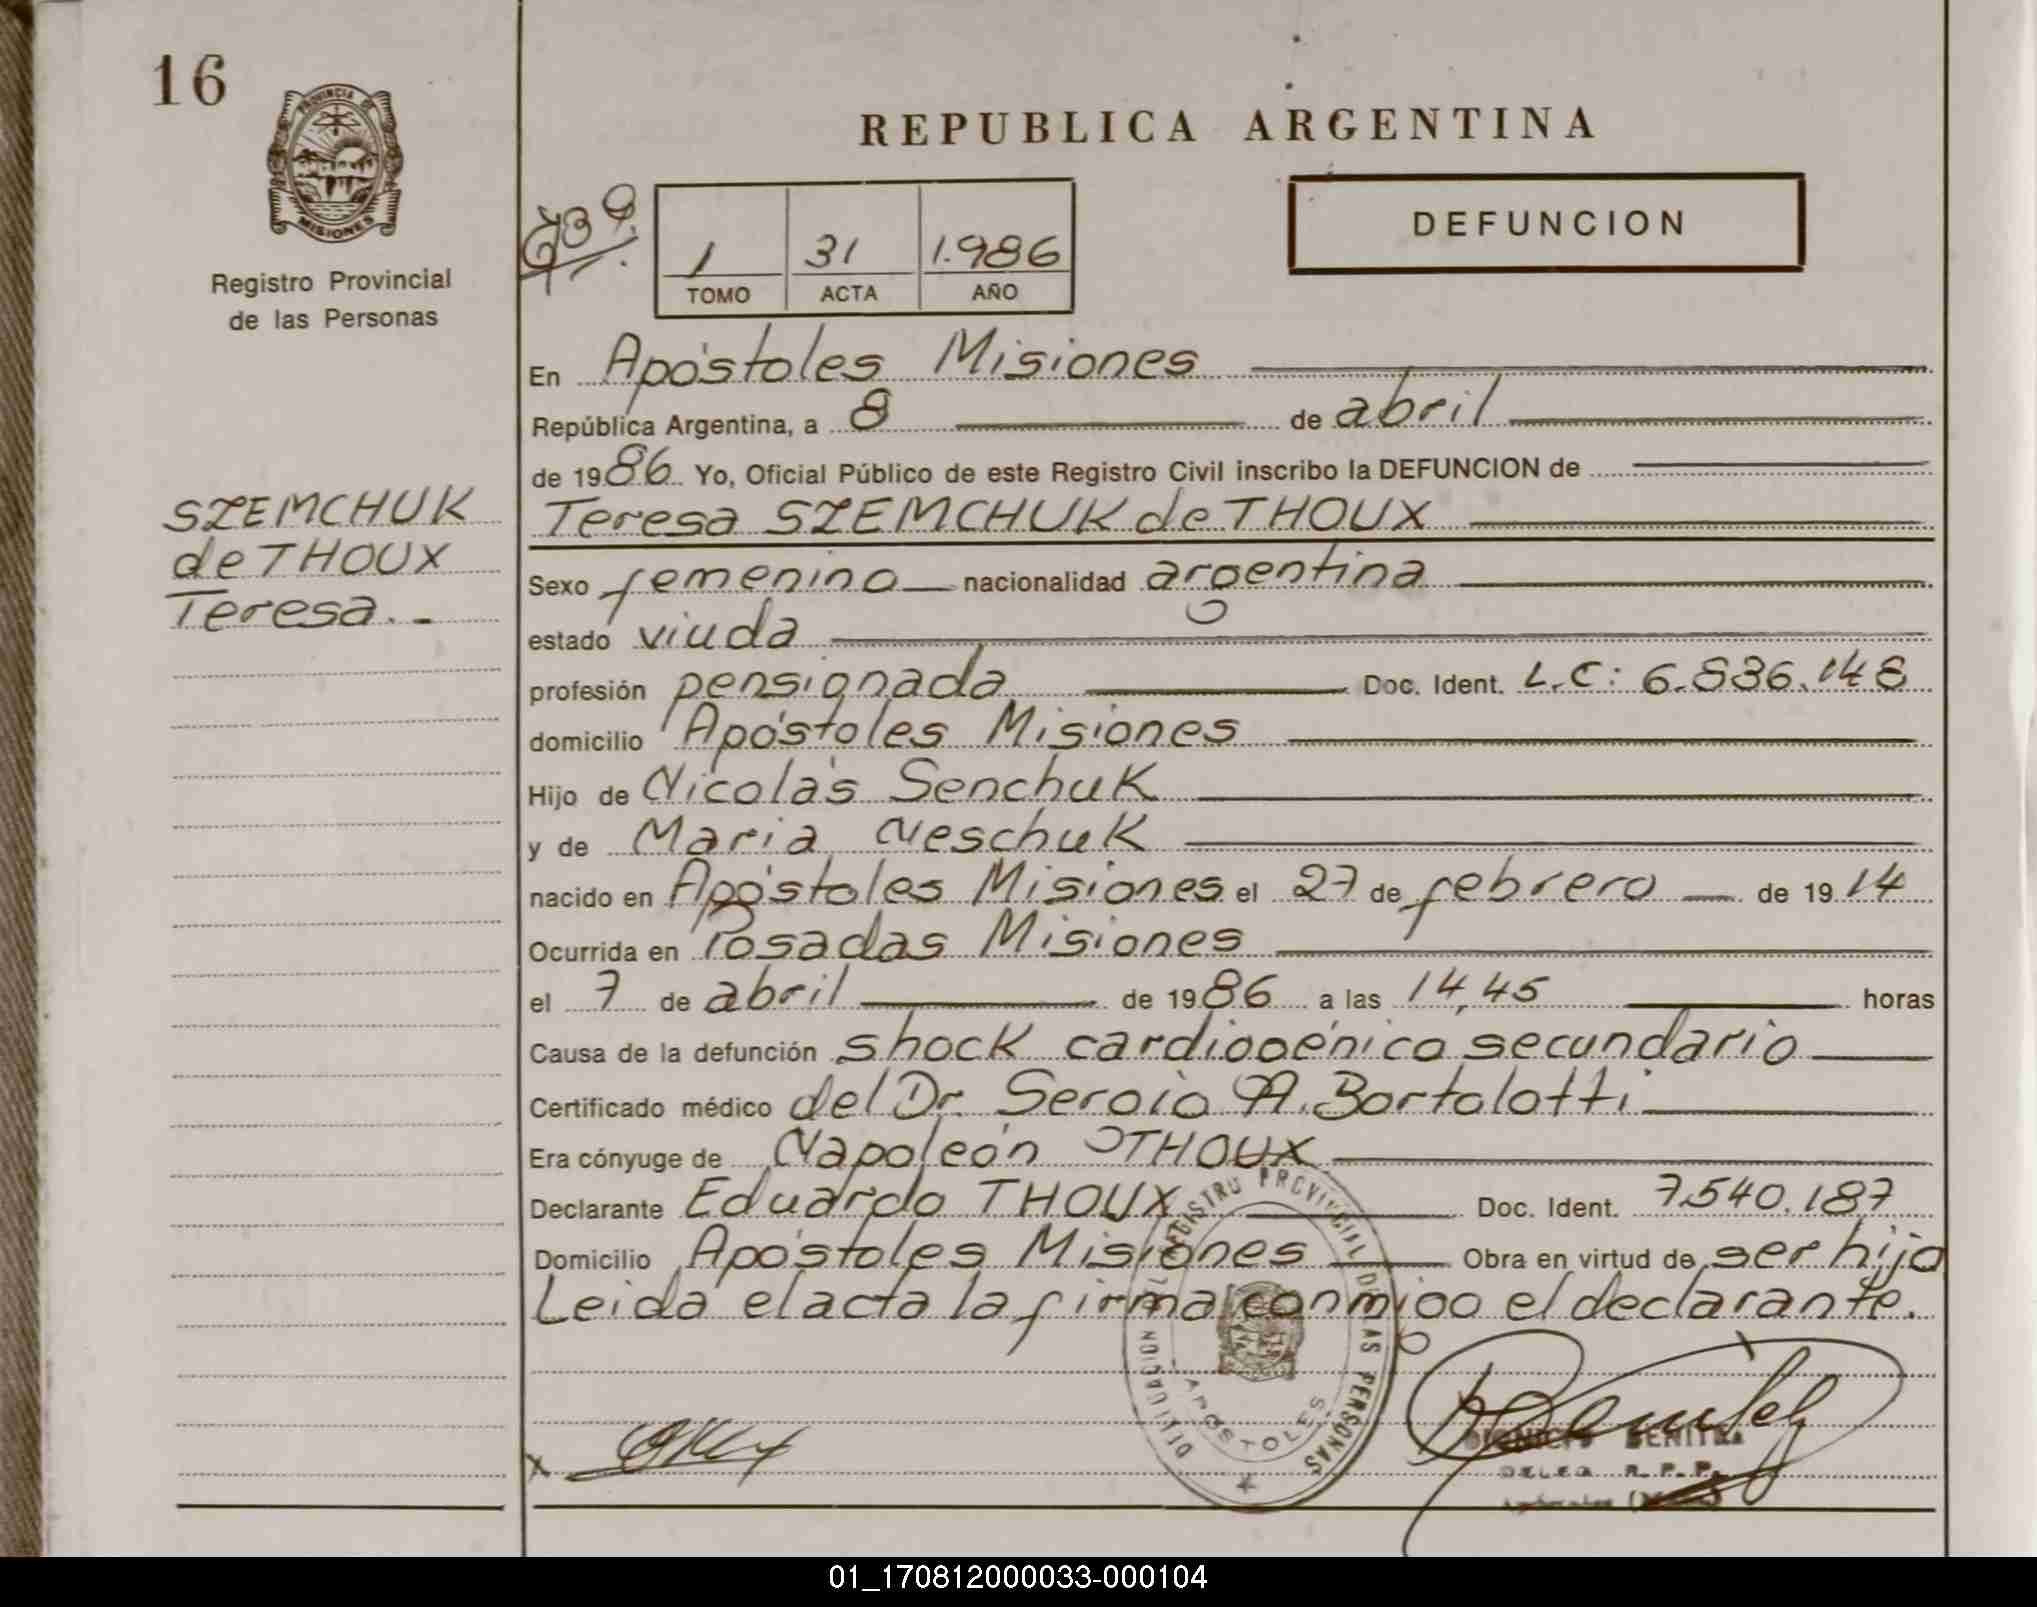 16
PROVINCIA DE
MISIONES
Registro Provincial
de las Personas
SZEMCHUK
de THOUX
Teresa.-
REPUBLICA ARGENTINA
DEFUNCION
1 31 1.986
TOMO ACTA AÑO
En Apóstoles Misiones
República Argentina, a 8 de abril
de 1986 Yo, Oficial Público de este Registro Civil inscribo la DEFUNCION de
Teresa SZEMCHUK de THOUX
Sexo femenino nacionalidad argentina
estado viuda
profesión pensionada Doc. Ident. L.C: 6.836.148
domicilio Apóstoles Misiones
Hijo de Nicolás Senchuk
y de Maria Neschuk
nacido en Apóstoles Misiones el 27 de febrero de 1914
Ocurrida en Posadas Misiones
el 7 de abril de 1986 a las 14,45 horas
Causa de la defunción shock cardiogénico secundario
Certificado médico del Dr. Sergio A. Bortolotti
Era cónyuge de Napoleón THOUX
Declarante Eduardo THOUX Doc. Ident. 7.540.187
Domicilio Apóstoles Misiones Obra en virtud de ser hijo
Leida el acta la firma conmigo el declarante.
REGISTRO PROVINCIAL DE LAS PERSONAS
APOSTOLES
DIONICIO BENITEZ
DELEG. R. P. P.
01_170812000033-000104